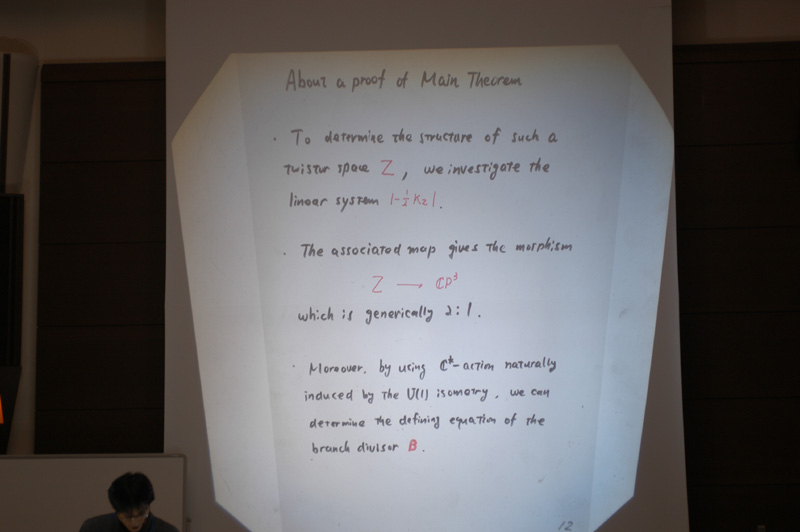 About a proof of Main Theorem
· To determine the structure of such a
twistor space Z, we investigate the
linear system |-½Kz|.
· The associated map gives the morphism
Z → ℂP³
which is generically 2:1.
· Moreover, by using ℂ*-action naturally
induced by the U(1) isometry, we can
determine the defining equation of the
branch divisor B.
12